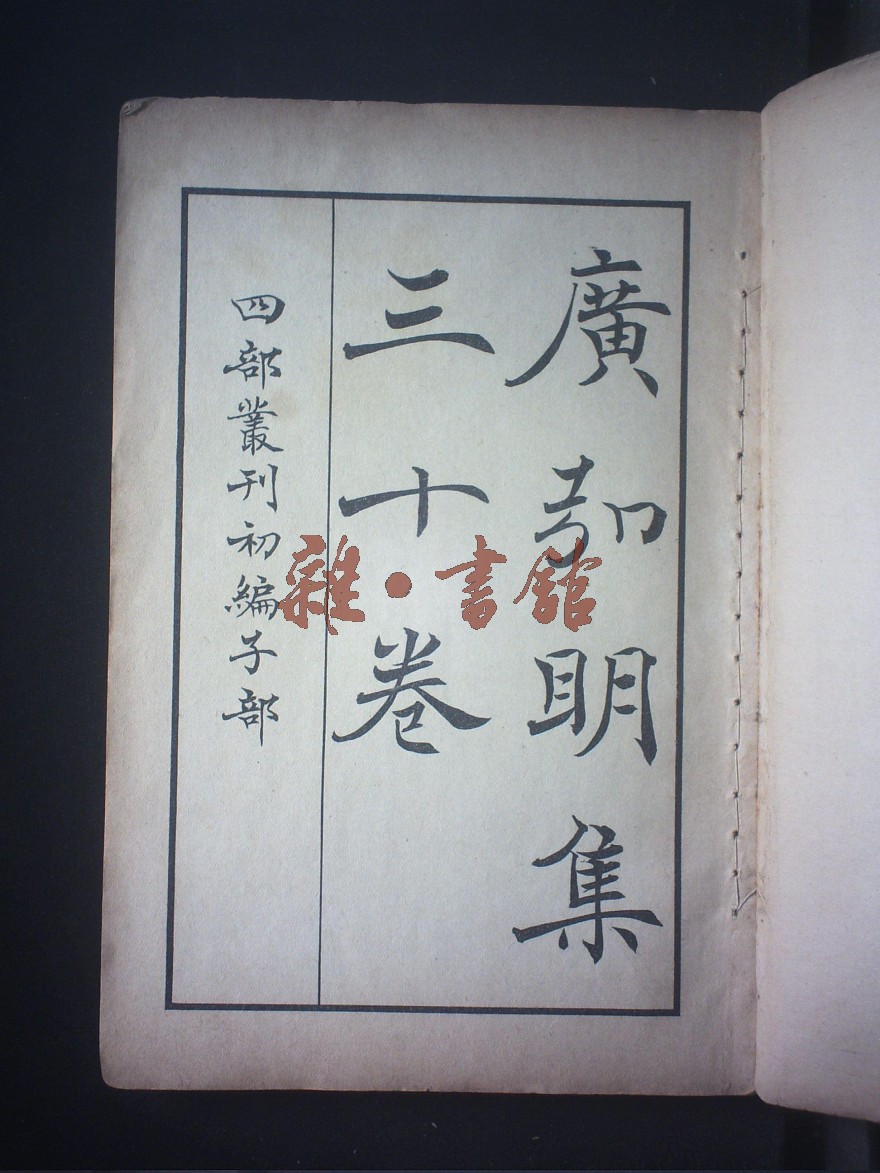 廣弘明集
三十卷
四部叢刊初編子部
雜·書館